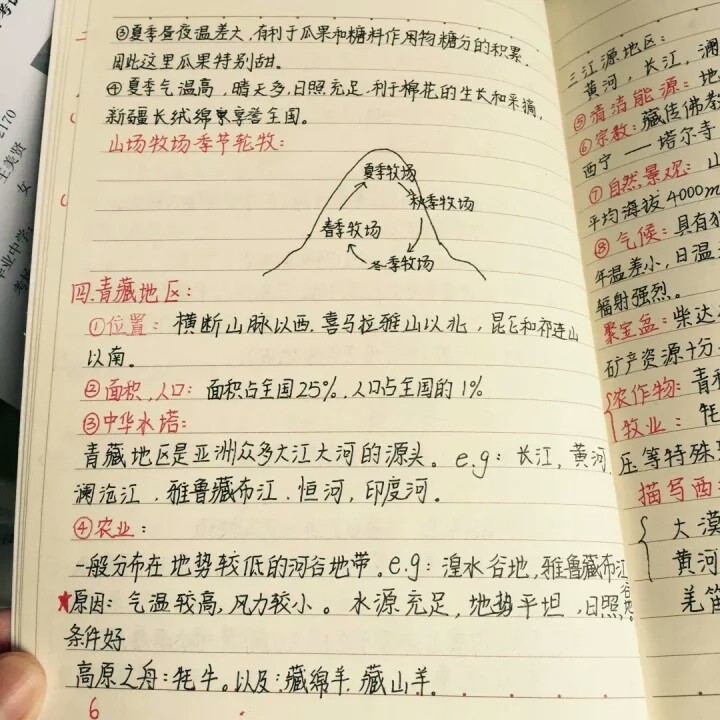 ③夏季昼夜温差大,有利于瓜果和糖料作用物糖分的积累.
因此这里瓜果特别甜。
④夏季气温高,晴天多,日照充足.利于棉花的生长和采摘,
新疆长绒绵享誉全国。
山场牧场季节轮牧:
夏季牧场
秋季牧场
春季牧场
冬季牧场
四.青藏地区:
①位置: 横断山脉以西.喜马拉雅山以北,昆仑和祁连山
以南。
②面积,人口: 面积占全国25%.人口占全国的1%
③中华水塔:
青藏地区是亚洲众多大江大河的源头。e.g: 长江,黄河,
澜沧江.雅鲁藏布江.恒河,印度河。
④农业:
一般分布在地势较低的河谷地带。e.g: 湟水谷地,雅鲁藏布江
谷地
★原因: 气温较高,风力较小。水源充足,地势平坦,日照
条件好
高原之舟:牦牛。以及:藏绵羊.藏山羊.
6
三江源地区:
黄河,长江,澜
⑤清洁能源: 地
⑥宗教: 藏传佛教
西宁——塔尔寺
⑦自然景观: 山
平均海拔4000m
⑧气候: 具有
年温差小,日温
辐射强烈。
聚宝盆: 柴达
矿产资源十分
农作物: 青
牧业: 牦
压等特殊
描写西
大漠
黄河
羌笛
2170
王美贤
女
毕业中学